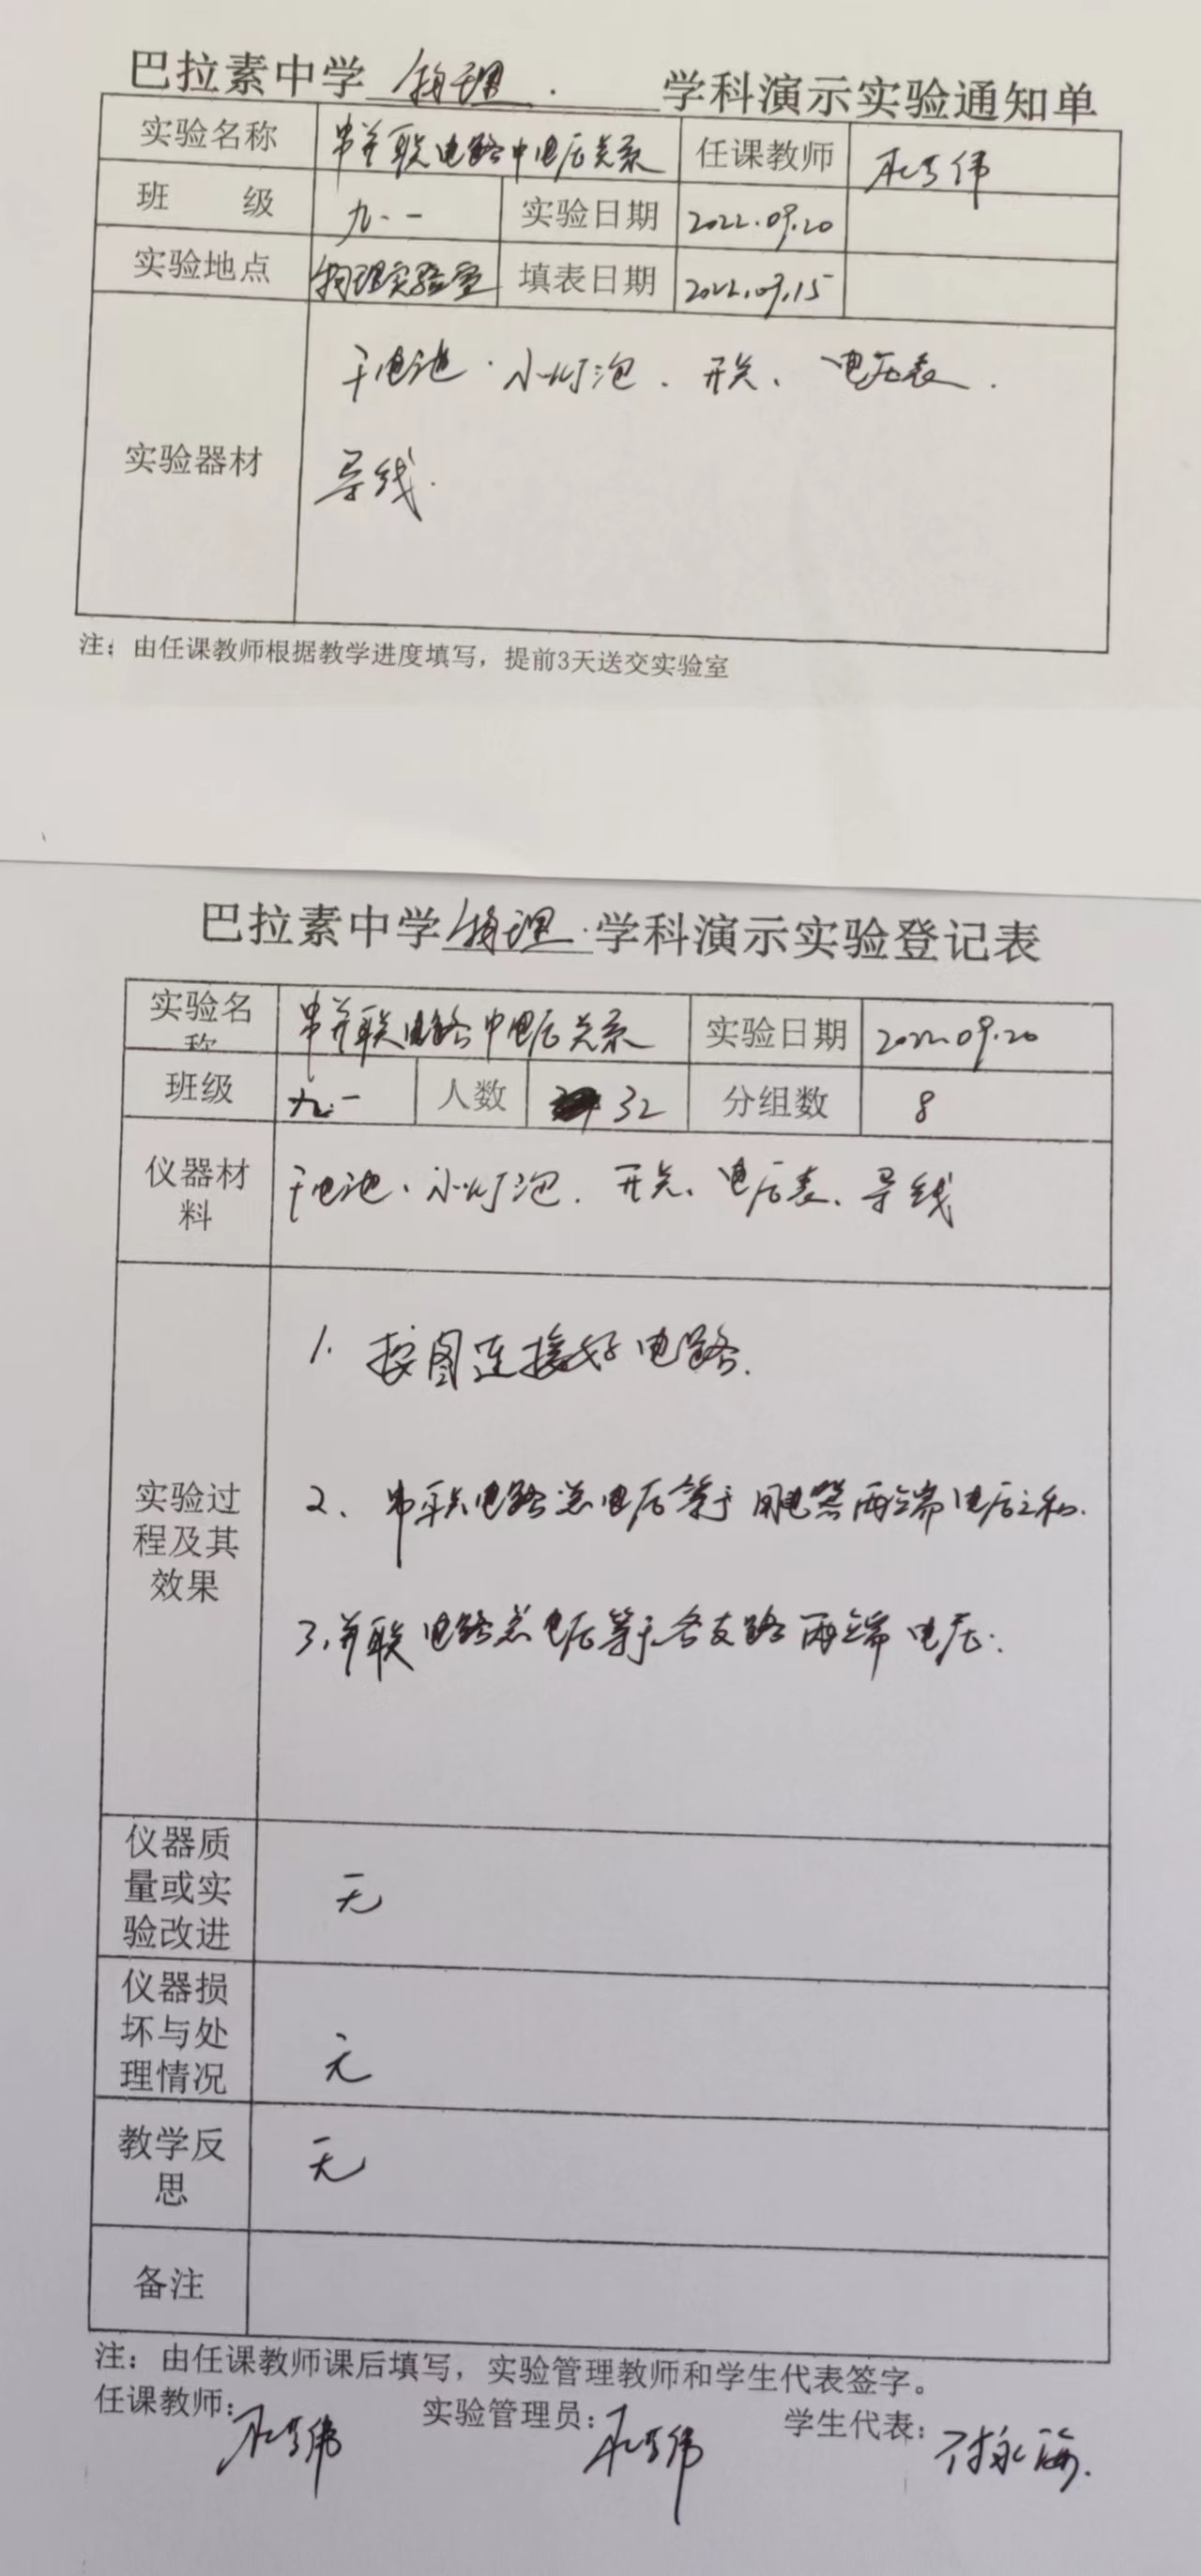 巴拉素中学 物理 学科演示实验通知单
实验名称 串并联电路中电压关系 任课教师
班 级 九.一 实验日期 2022.09.20
实验地点 物理实验室 填表日期 2022.09.15
干电池、小灯泡、开关、电压表、
实验器材
导线.
注：由任课教师根据教学进度填写，提前3天送交实验室
巴拉素中学 物理 学科演示实验登记表
实验名
称
串并联电路中电压关系 实验日期 2022.09.20
班级 九.一 人数 32 分组数 8
仪器材
料
干电池、小灯泡、开关、电压表、导线
1. 按图连接好电路.
2、串联电路总电压等于用电器两端电压之和.
实验过
程及其
效果
3、并联电路总电压等于各支路两端电压.
仪器质
量或实
验改进
无
仪器损
坏与处
理情况
无
教学反
思
无
备注
注：由任课教师课后填写，实验管理教师和学生代表签字。
任课教师： 实验管理员： 学生代表：